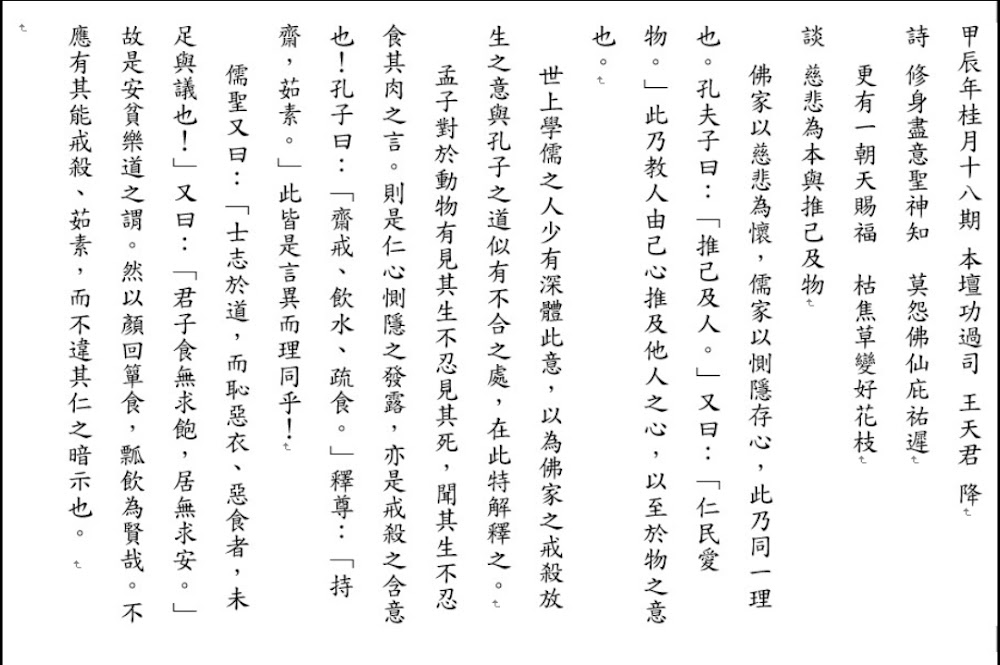 甲辰年桂月十八期 本壇功過司 王天君 降
詩 修身盡意聖神知 莫怨佛仙庇祐遲
更有一朝天賜福 枯焦草變好花枝
談 慈悲為本與推己及物
佛家以慈悲為懷，儒家以惻隱存心，此乃同一理
也。孔夫子曰：「推己及人。」又曰：「仁民愛
物。」此乃教人由己心推及他人之心，以至於物之意
也。
世上學儒之人少有深體此意，以為佛家之戒殺放
生之意與孔子之道似有不合之處，在此特解釋之。
孟子對於動物有見其生不忍見其死，聞其生不忍
食其肉之言。則是仁心惻隱之發露，亦是戒殺之含意
也！孔子曰：「齋戒、飲水、疏食。」釋尊：「持
齋，茹素。」此皆是言異而理同乎！
儒聖又曰：「士志於道，而恥惡衣、惡食者，未
足與議也！」又曰：「君子食無求飽，居無求安。」
故是安貧樂道之謂。然以顏回簞食，瓢飲為賢哉。不
應有其能戒殺、茹素，而不違其仁之暗示也。